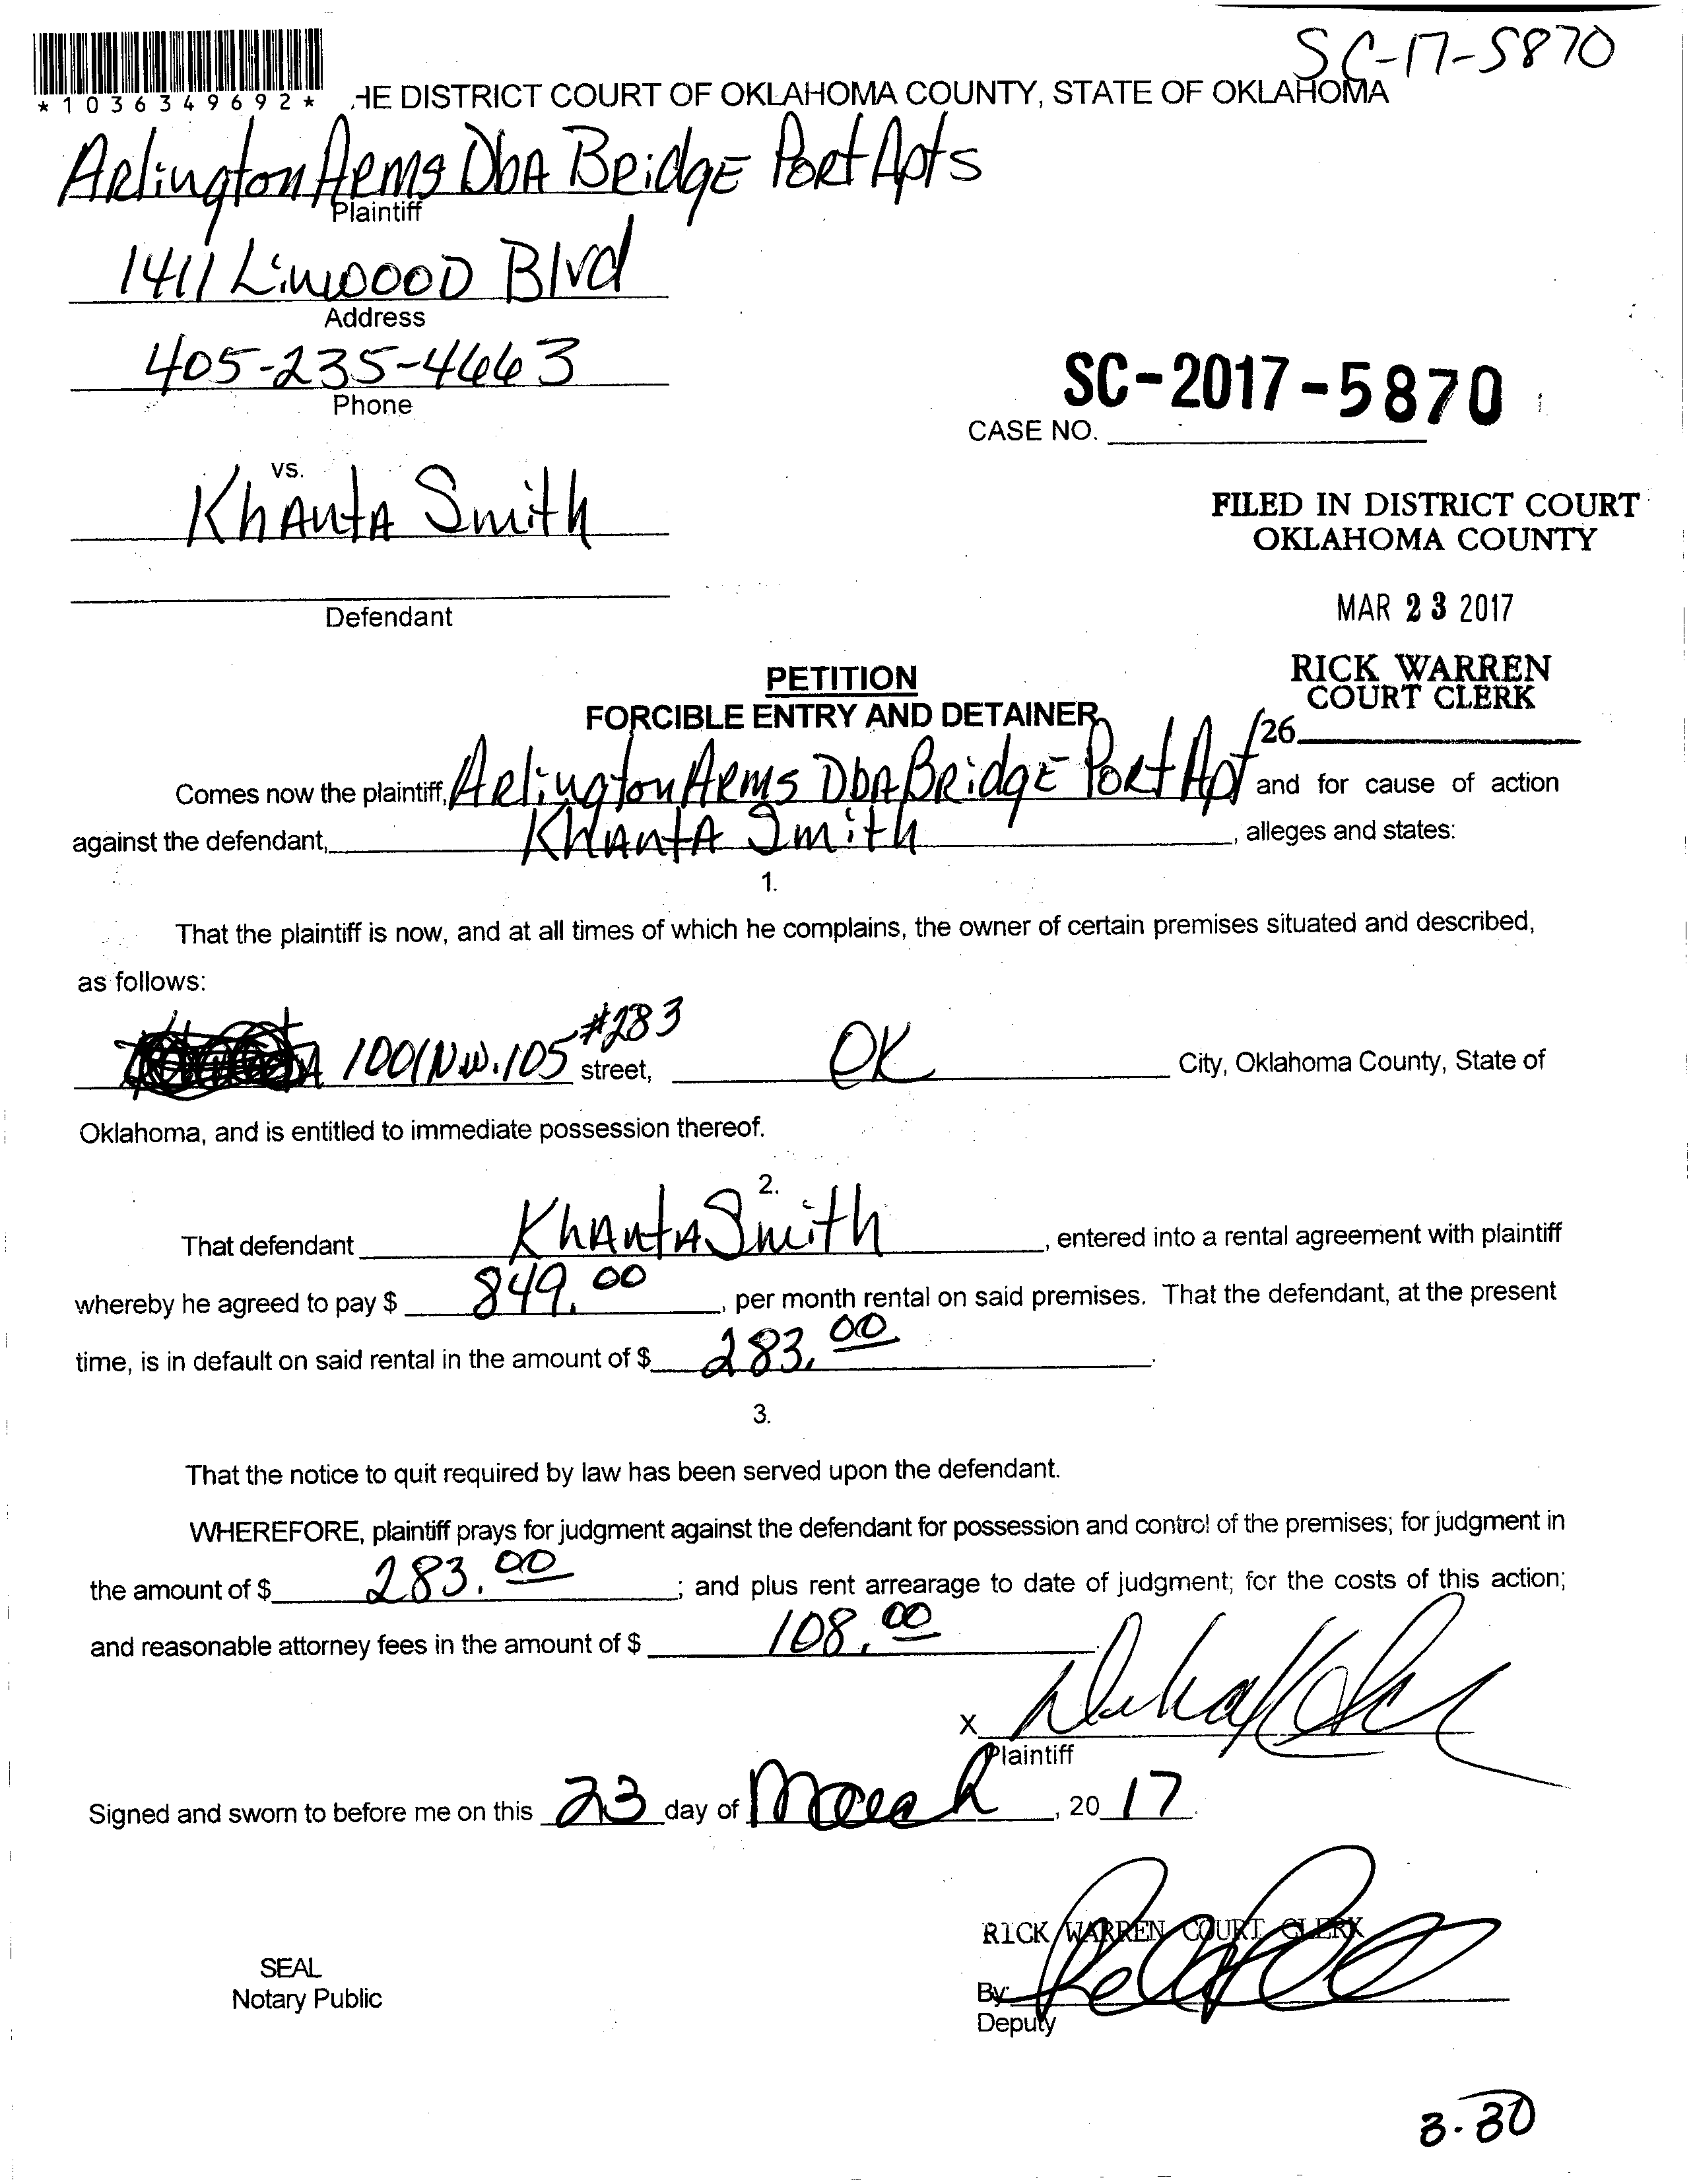 SC-17-5870
*1036349692*
HE DISTRICT COURT OF OKLAHOMA COUNTY, STATE OF OKLAHOMA
Arlington Arms DbA Bridge Port Apts
Plaintiff
1411 Linwood Blvd
Address
405-235-4663
Phone
SC-2017-5870
CASE NO.
vs.
Khanta Smith
FILED IN DISTRICT COURT
OKLAHOMA COUNTY
Defendant
MAR 23 2017
RICK WARREN
COURT CLERK
PETITION
FORCIBLE ENTRY AND DETAINER
126
Comes now the plaintiff, Arlington Arms DbA Bridge Port Apt and for cause of action
against the defendant, Khanta Smith, alleges and states:
1.
That the plaintiff is now, and at all times of which he complains, the owner of certain premises situated and described,
as follows:
1001 N.W. 105 #283 street, OK City, Oklahoma County, State of
Oklahoma, and is entitled to immediate possession thereof.
2.
That defendant Khanta Smith, entered into a rental agreement with plaintiff
whereby he agreed to pay $ 849.00, per month rental on said premises. That the defendant, at the present
time, is in default on said rental in the amount of $ 283.00.
3.
That the notice to quit required by law has been served upon the defendant.
WHEREFORE, plaintiff prays for judgment against the defendant for possession and control of the premises; for judgment in
the amount of $ 283.00; and plus rent arrearage to date of judgment; for the costs of this action;
and reasonable attorney fees in the amount of $ 108.00
X
Plaintiff
Signed and sworn to before me on this 23 day of March, 20 17.
RICK WARREN COURT CLERK
SEAL
Notary Public
By
Deputy
3-30